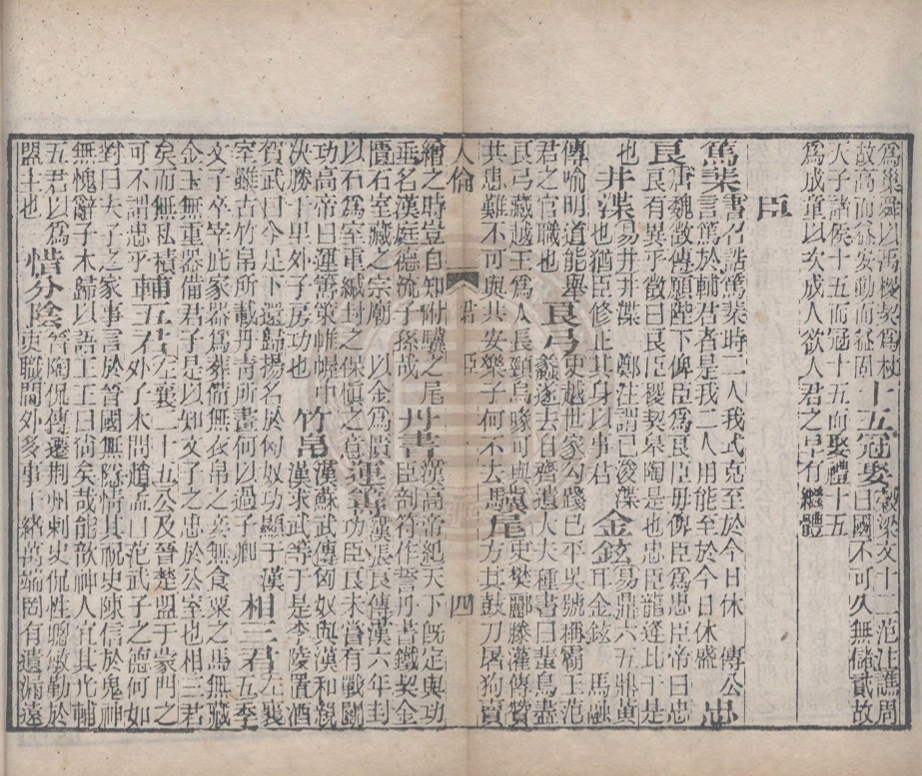 為巢舜以禹稷契為杖
故高而益安動而益固
十五冠娶
穀梁文十二范注譙周
曰國不可久無儲貳故
天子諸侯十五而冠十五而娶禮十五
為成童以次成人欲人君之早有繼體
臣
篤棐
書名誥篤棐時二人我式克至於今日休 傳公
言篤於輔君者是我二人用能至於今日休盛
忠
良
唐魏徵傳願陛下俾臣為良臣毋俾臣為忠臣帝曰忠
良有異乎徵曰良臣稷契皋陶是也忠臣龍逄比干是
也
井渫
易井井渫 鄭注謂已浚渫
也猶臣修正其身以事君
金鉉
易鼎六五鼎黃
耳金鉉 馬融
傳喻明道能舉
君之官職也
良弓
史越世家勾踐已平吳號稱霸王范
蠡遂去自齊遺大夫種書曰蜚鳥盡
良弓藏越王為人長頸烏喙可與
共患難不可與共安樂子何不去
驥尾
史樊酈滕灌傳贊
方其鼓刀屠狗賣
人倫 君 臣 四
繒之時豈自知附驥之尾
垂名漢庭德流子孫哉
丹書
漢高帝紀天下既定與功
臣剖符作誓丹書鐵契金
匱石室藏之宗廟 以金為匱
以石為室重緘封之保慎之意
運籌
漢張良傳漢六年封
功臣良未嘗有戰鬬
功高帝曰運籌策帷幄中
決勝千里外子房功也
竹帛
漢蘇武傳匈奴與漢和親
漢求武等于是李陵置酒
賀武曰今足下還歸揚名於匈奴功顯于漢
室雖古竹帛所載丹青所畫何以過子卿
相三君
左襄
五季
文子卒宰庀家器為葬備無衣帛之妾無食粟之馬無藏
金玉無重器備君子是以知文子之忠於公室也相三君
矣而無私積
可不謂忠乎
輔五君
左襄二十五公及晉楚盟于蒙門之
外子木問趙孟曰范武子之德何如
對曰夫子之家事言於晉國無隱情其祝史陳信於鬼神
無愧辭子木歸以語王王曰尚矣哉能歆神人宜其光輔
五君以為
盟主也
惜分陰
晉陶侃傳遷荊州刺史侃性聰敏勤於
吏職閫外多事千緒萬端罔有遺漏遠